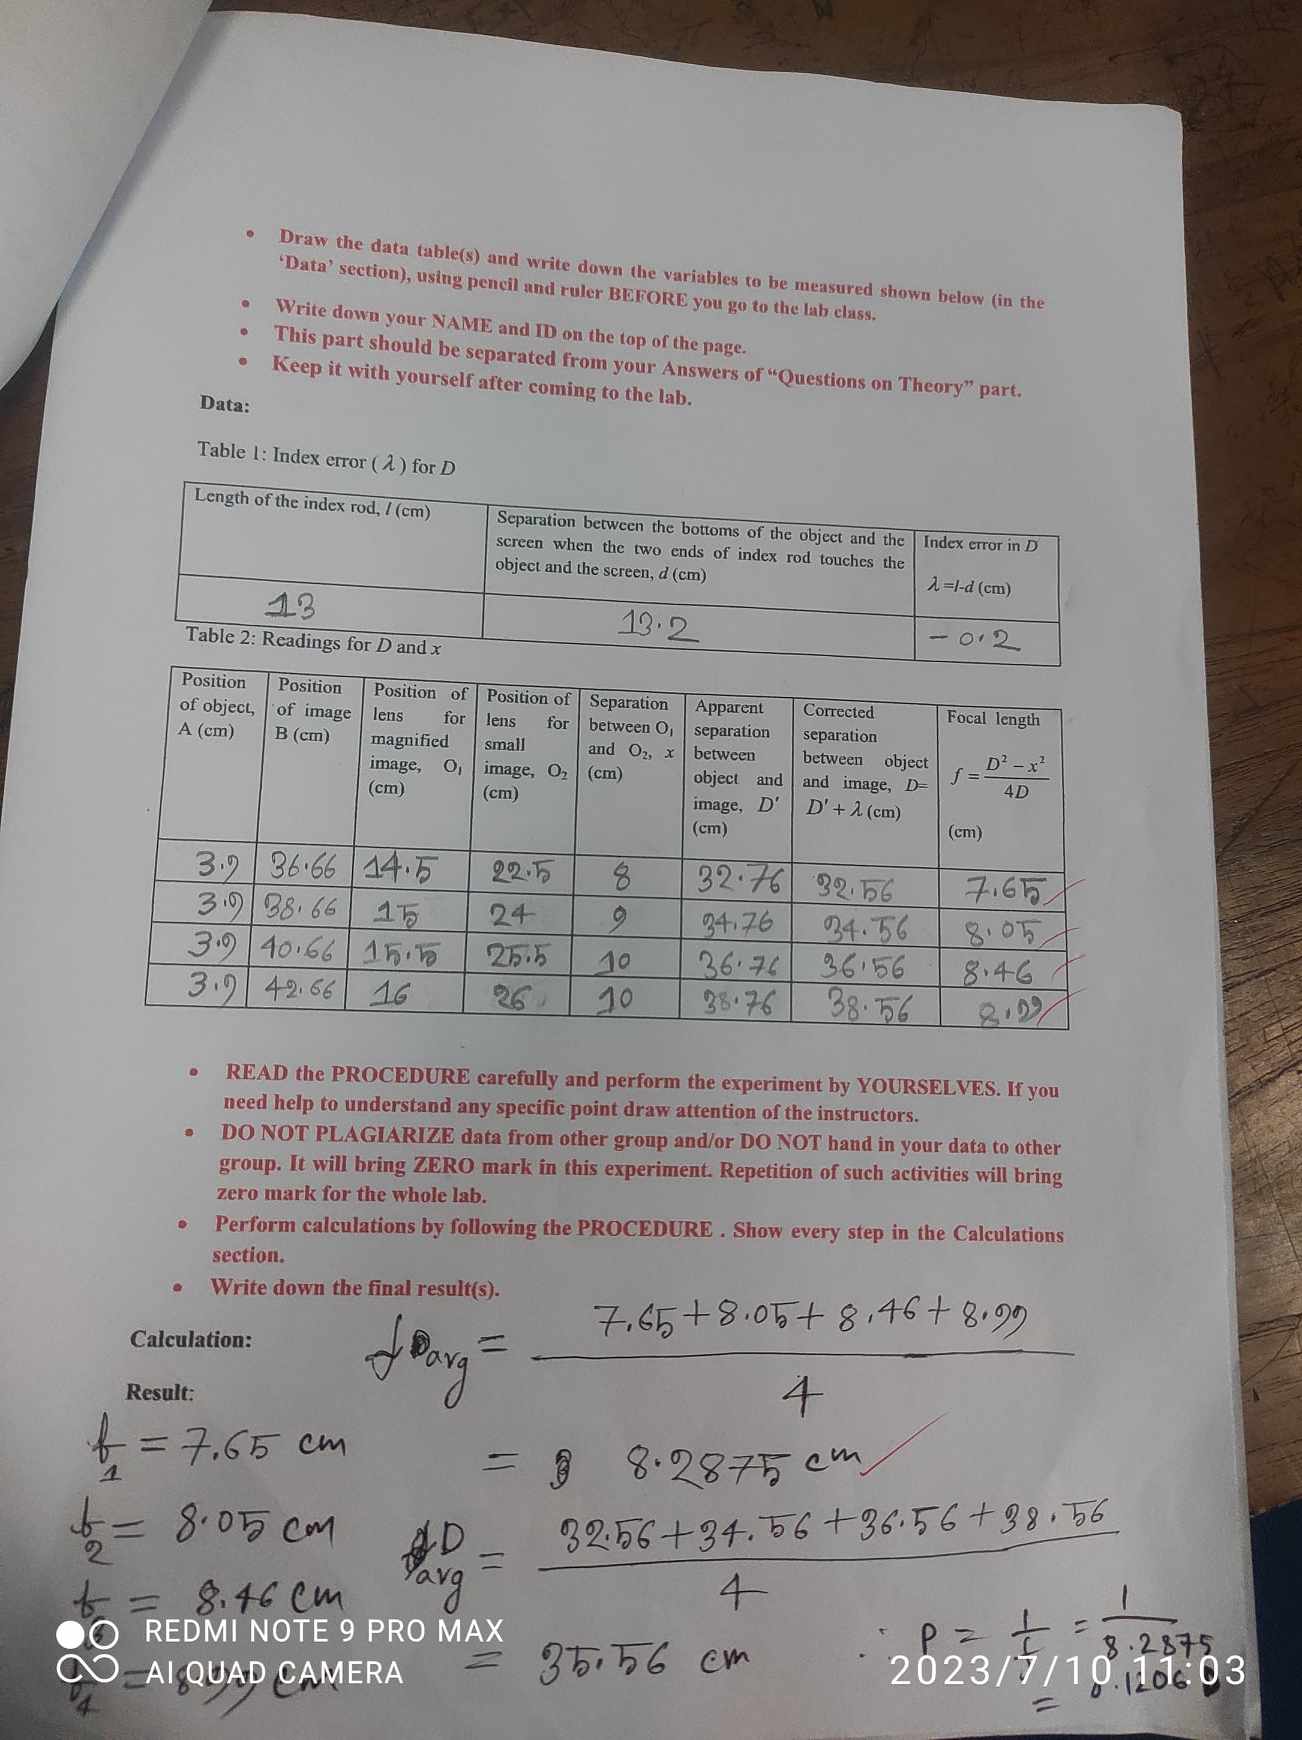 • Draw the data table(s) and write down the variables to be measured shown below (in the
‘Data’ section), using pencil and ruler BEFORE you go to the lab class.
• Write down your NAME and ID on the top of the page.
• This part should be separated from your Answers of “Questions on Theory” part.
• Keep it with yourself after coming to the lab.
Data:
Table 1: Index error (λ) for D
Length of the index rod, l (cm)
Separation between the bottoms of the object and the
screen when the two ends of index rod touches the
object and the screen, d (cm)
Index error in D
λ =l-d (cm)
13 13.2 -0.2
Table 2: Readings for D and x
Position
of object,
A (cm)
Position
of image
B (cm)
Position of
lens for
magnified
image, O₁
(cm)
Position of
lens for
small
image, O₂
(cm)
Separation
between O₁
and O₂, x
(cm)
Apparent
separation
between
object and
image, D′
(cm)
Corrected
separation
between object
and image, D=
D′ + λ (cm)
Focal length
f = D² − x² / 4D
(cm)
3.9 36.66 14.5 22.5 8 32.76 32.56 7.65
3.9 38.66 15 24 9 34.76 34.56 8.05
3.9 40.66 15.5 25.5 10 36.76 36.56 8.46
3.9 42.66 16 26 10 38.76 38.56 8.99
• READ the PROCEDURE carefully and perform the experiment by YOURSELVES. If you
need help to understand any specific point draw attention of the instructors.
• DO NOT PLAGIARIZE data from other group and/or DO NOT hand in your data to other
group. It will bring ZERO mark in this experiment. Repetition of such activities will bring
zero mark for the whole lab.
• Perform calculations by following the PROCEDURE . Show every step in the Calculations
section.
• Write down the final result(s).
Calculation:
f avg = 7.65+8.05+8.46+8.99 / 4
= 8.2875 cm
Result:
f₁ = 7.65 cm
f₂ = 8.05 cm
= 8.46 cm
= 8.99 cm
D avg = 32.56+34.56+36.56+38.56 / 4
= 35.56 cm
∴ P = 1/f = 1/8.2875
= 0.1206 D
REDMI NOTE 9 PRO MAX
AI QUAD CAMERA
2023/7/10 11:03